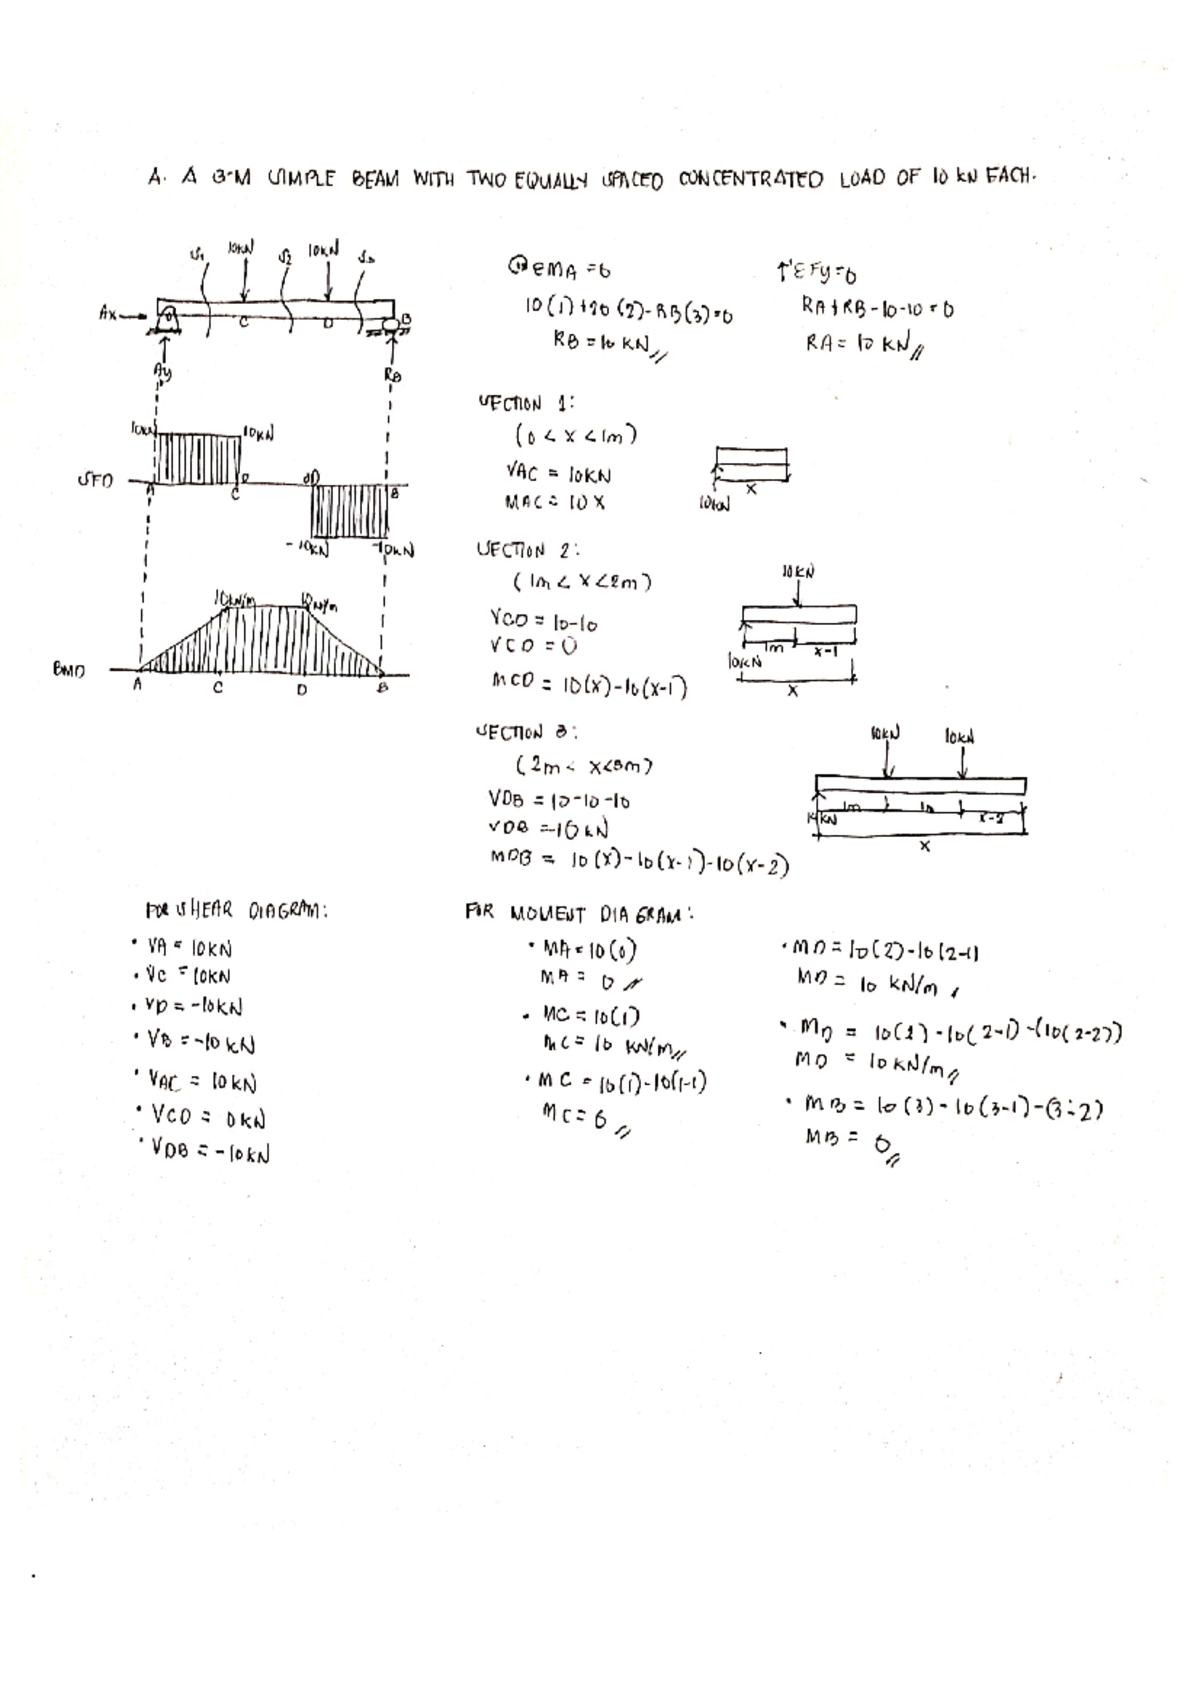 A. A 3-M SIMPLE BEAM WITH TWO EQUALLY SPACED CONCENTRATED LOAD OF 10 KN EACH.
S1 10KN S2 10KN S3
Ax
C D B
Ay RB
10KN 10KN
SFD A C D B
-10KN -10KN
10KN/m 10KN/m
BMD
A C D B
ΣMA = 0
10(1)+10(2)-RB(3)=0
RB = 10 KN
↑ΣFy=0
RA+RB-10-10=0
RA= 10 KN
SECTION 1:
(0 < X < 1m)
VAC = 10KN
MAC = 10X
10KN X
SECTION 2:
(1m < X < 2m)
VCD = 10-10
VCD = 0
MCD = 10(X)-10(X-1)
10KN
1m X-1
10KN
X
SECTION 3:
(2m < X<3m)
VDB = 10-10-10
VDB =-10KN
MDB = 10(X)-10(X-1)-10(X-2)
10KN 10KN
1m 1m X-2
10KN
X
FOR SHEAR DIAGRAM:
• VA = 10KN
• VC = 10KN
• VD = -10KN
• VB = -10KN
• VAC = 10KN
• VCD = 0KN
• VDB = -10KN
FOR MOMENT DIAGRAM:
• MA = 10(0)
MA = 0
• MC = 10(1)
MC = 10 KN/m
• MC = 10(1)-10(1-1)
MC = 0
• MD = 10(2)-10(2-1)
MD = 10 KN/m
• MD = 10(2)-10(2-1)-(10(2-2))
MD = 10KN/m
• MB = 10(3)-10(3-1)-(3-2)
MB = 0